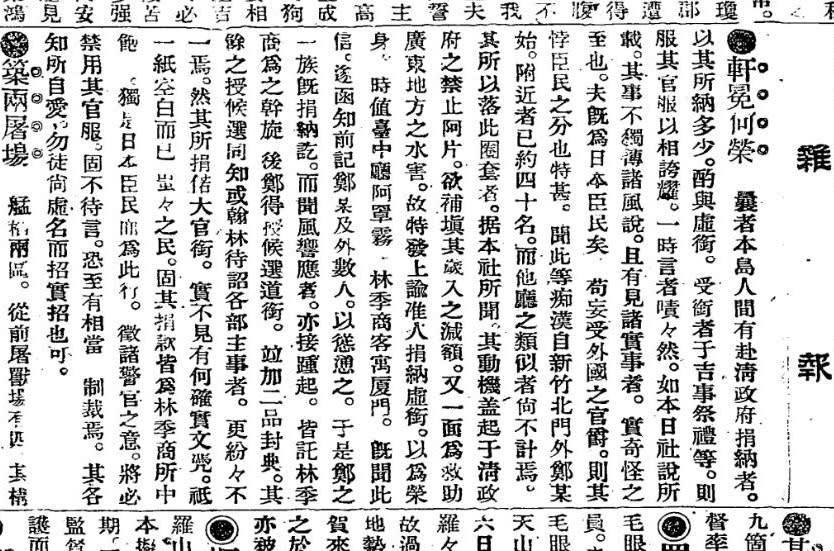 雜報
軒冕何榮　曩者本島人間有赴清政府捐納者。
以其所納多少。酌與虛銜。受銜者于吉事祭禮等。則
服其官服以相誇耀。一時言者嘖々然。如本日社說所
載。其事不獨薄諸風說。且有見諸實事者。實奇怪之
至也。夫既爲日本臣民矣　苟妄受外國之官爵。則其
悖臣民之分也特甚。聞此等痴漢自新竹北門外鄭某
始。附近者已約四十名。而他廳之類似者尙不計焉。
其所以落此圈套者。据本社所聞。其動機蓋起于清政
府之禁止阿片。欲補塡其歲入之減額。又一面爲救助
廣東地方之水害。故特發上諭准人捐納虛銜。以爲榮
身。時値臺中廳阿罩霧　林季商客寓厦門。既聞此
信。遂函知前記鄭某及外數人。以慫慂之。于是鄭之
一族既捐納訖。而聞風響應者。亦接踵起。皆託林季
商爲之幹旋　後鄭得授候選道銜。並加二品封典。其
餘之授候選同知或翰林待詔各部主事者。更紛々不
一焉。然其所捐偌大官銜。實不見有何確實文凭。祗
一紙空白而已　蚩々之民。固其捐款皆爲林季商所中
飽　獨是日本臣民而爲此行。徵諸警官之意。將必
禁用其官服。固不待言。恐至有相當　制裁焉。其各
知所自愛。勿徒尙虛名而招實招也可。
築兩屠場　艋稻兩區。從前屠獸場有四　其構